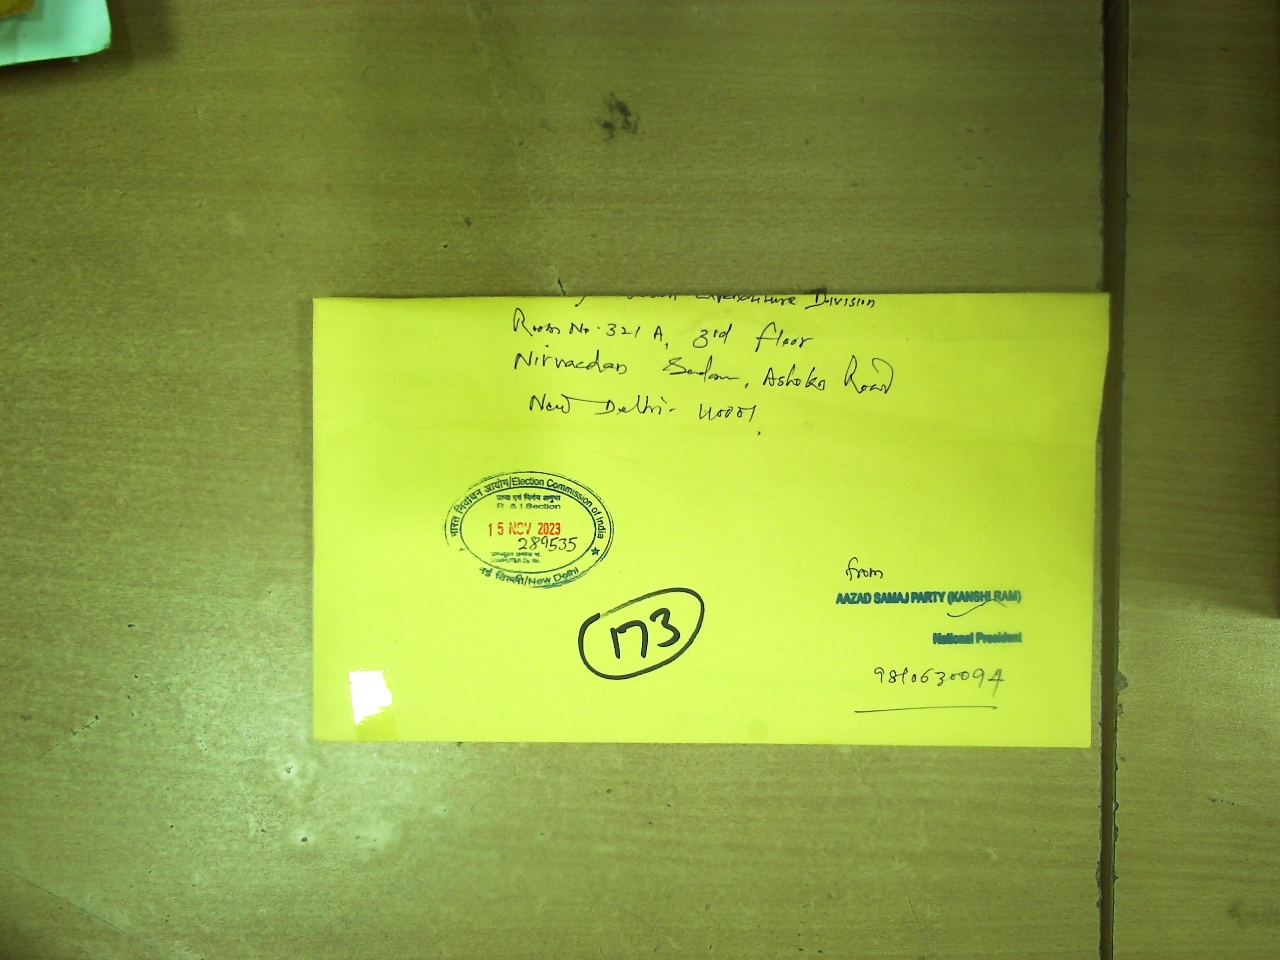 Expenditure Division
Room No. 321 A, 3rd floor
Nirvachan Sadan, Ashoka Road
New Delhi - 110001.
भारत निर्वाचन आयोग/Election Commission of India
R & I Section
15 NOV 2023
289535
COMPUTER Dy. No.
नई दिल्ली/New Delhi
173
from
AAZAD SAMAJ PARTY (KANSHI RAM)
National President
9810630094